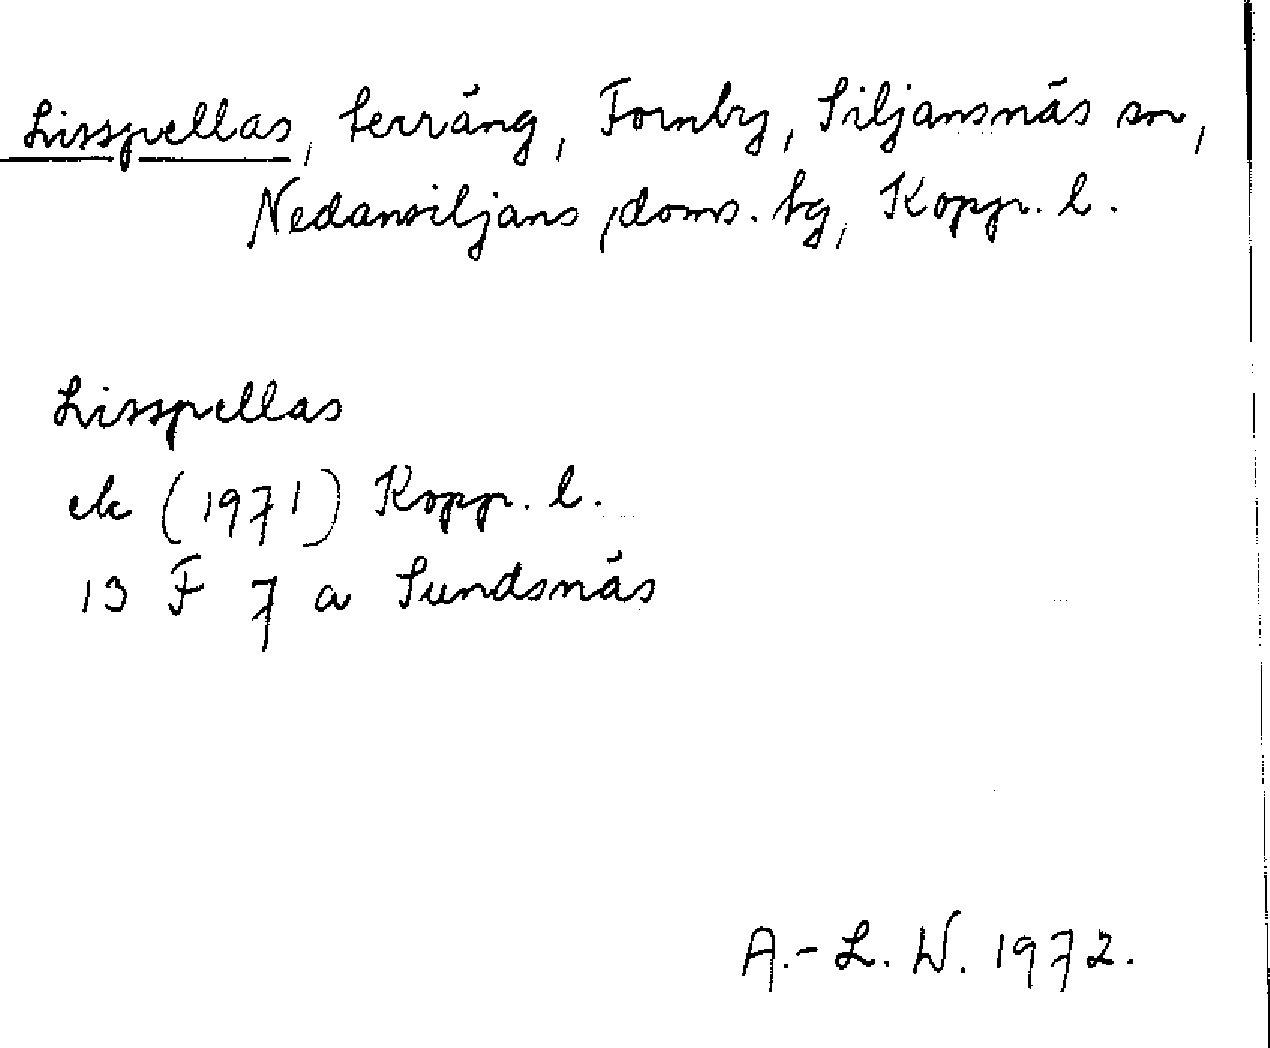 Lisspellas, terräng, Fornby, Siljansnäs sn,
Nedansiljans doms. tg, Kopp. l.
Lisspellas
ek (1971) Kopp. l.
13 F 7 a Sundsnäs
A.-L. W. 1972.